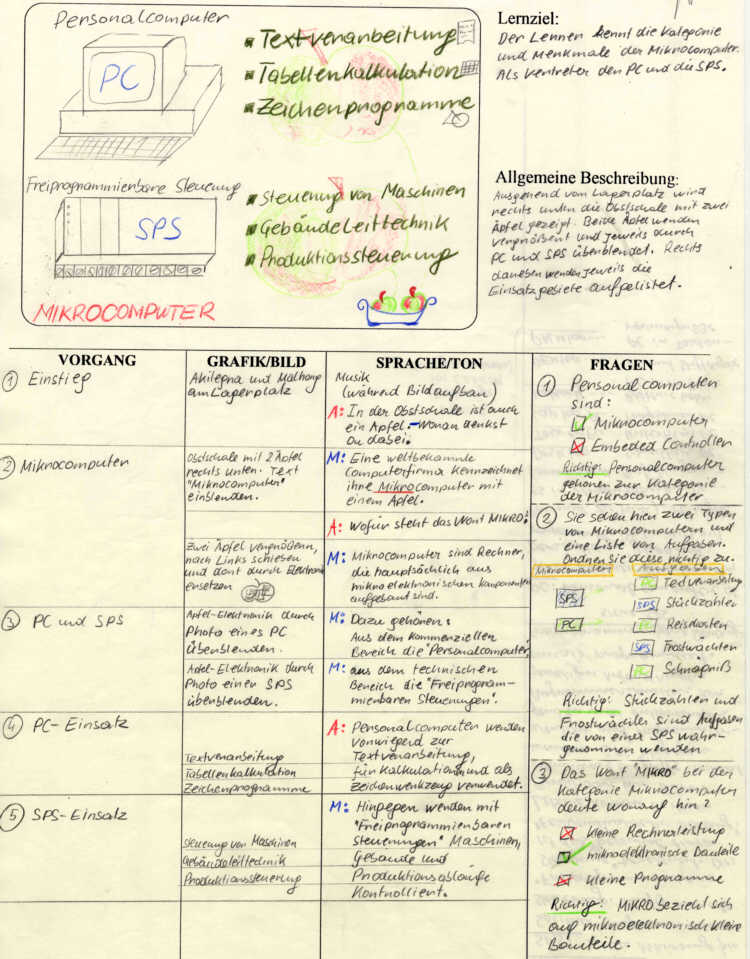 Personalcomputer
PC
Textverarbeitung
Tabellenkalkulation
Zeichenprogramme
Freiprogrammierbare Steuerung
SPS
Steuerung von Maschinen
Gebäudeleittechnik
Produktionssteuerung
MIKROCOMPUTER
Lernziel:
Der Lernen kennt die Kategorie
und Merkmale der Mikrocomputer.
Als Vertreter den PC und die SPS.
Allgemeine Beschreibung:
Ausgehend vom Lagerplatz wird
rechts unten die Obstschale mit zwei
Äpfel gezeigt. Beide Äpfel werden
vergrößert und jeweils durch
PC und SPS überblendet. Rechts
daneben werden jeweils die
Einsatzgebiete aufgelistet.
VORGANG
① Einstieg
② Mikrocomputer
③ PC und SPS
④ PC-Einsatz
⑤ SPS-Einsatz
GRAFIK/BILD
am Lagerplatz
Obstschale mit 2 Äpfel
rechts unten. Text
"Mikrocomputer"
einblenden.
Zwei Äpfel vergrößern,
nach Links schieben
und dann durch Elektronik
ersetzen
Apfel-Elektronik durch
Photo eines PC
Überblenden.
Apfel-Elektronik durch
Photo einer SPS
überblenden.
Textverarbeitung
Tabellenkalkulation
Zeichenprogramme
Steuerung von Maschinen
Gebäudeleittechnik
Produktionssteuerung
SPRACHE/TON
Musik
(während Bildaufbau)
A: In der Obstschale ist auch
ein Apfel. - Woran denkst
Du dabei.
M: Eine weltbekannte
Computerfirma Kennzeichnet
ihre Mikrocomputer mit
einem Apfel.
A: Wofür steht das Wort MIKRO?
M: Mikrocomputer sind Rechner,
die hauptsächlich aus
mikroelektronischen Komponenten
aufgebaut sind.
M: Dazu gehören:
Aus dem kommerziellen
Bereich die "Personalcomputer",
M: aus dem technischen
Bereich die "Freiprogram-
mierbaren Steuerungen".
A: Personalcomputer werden
vorwiegend zur
Textverarbeitung,
für Kalkulationen und als
Zeichenwerkzeug verwendet.
M: Hingegen werden mit
"Freiprogrammierbaren
Steuerungen" Maschinen,
Gebäude und
Produktionsabläufe
Kontrolliert.
FRAGEN
① Personalcomputer
sind:
Mikrocomputer
Embeded Controller
Richtig: Personalcomputer
gehören zur Kategorie
der Mikrocomputer
② Sie sehen hier zwei Typen
von Mikrocomputern und
eine Liste von Aufgaben.
Ordnen Sie diese richtig zu.
Mikrocomputer: Aufgaben
SPS
PC
PC Textverarbeitung
SPS Stückzählen
PC Reisekosten
SPS Frostwächter
PC Schnappriß
Richtig: Stückzählen und
Frostwächter sind Aufgaben
die von einer SPS wahr-
genommen werden
③ Das Wort "MIKRO" bei der
Kategorie Mikrocomputer
deute worauf hin?
kleine Rechnerleistung
mikroelektronische Bauteile
kleine Programme
Richtig: MIKRO bezieht sich
auf mikroelektronisch kleine
Bauteile.